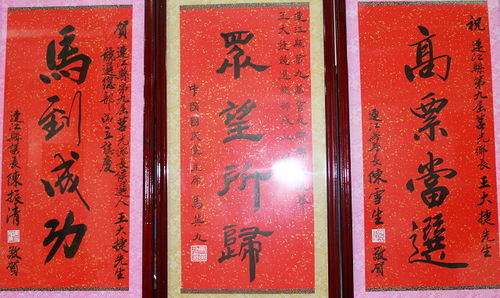 祝 連江縣第九屆莒光鄉長王大捷先生
高票當選
連江縣縣長陳雪生 敬賀
連江縣第九屆莒光鄉鄉長
王大捷競選總部成立
眾望所歸
中國國民黨主席 馬英九
賀 連江縣第九屆莒光鄉長候選人王大捷先生
競選總部成立誌慶
馬到成功
連江縣議長陳振清 敬賀